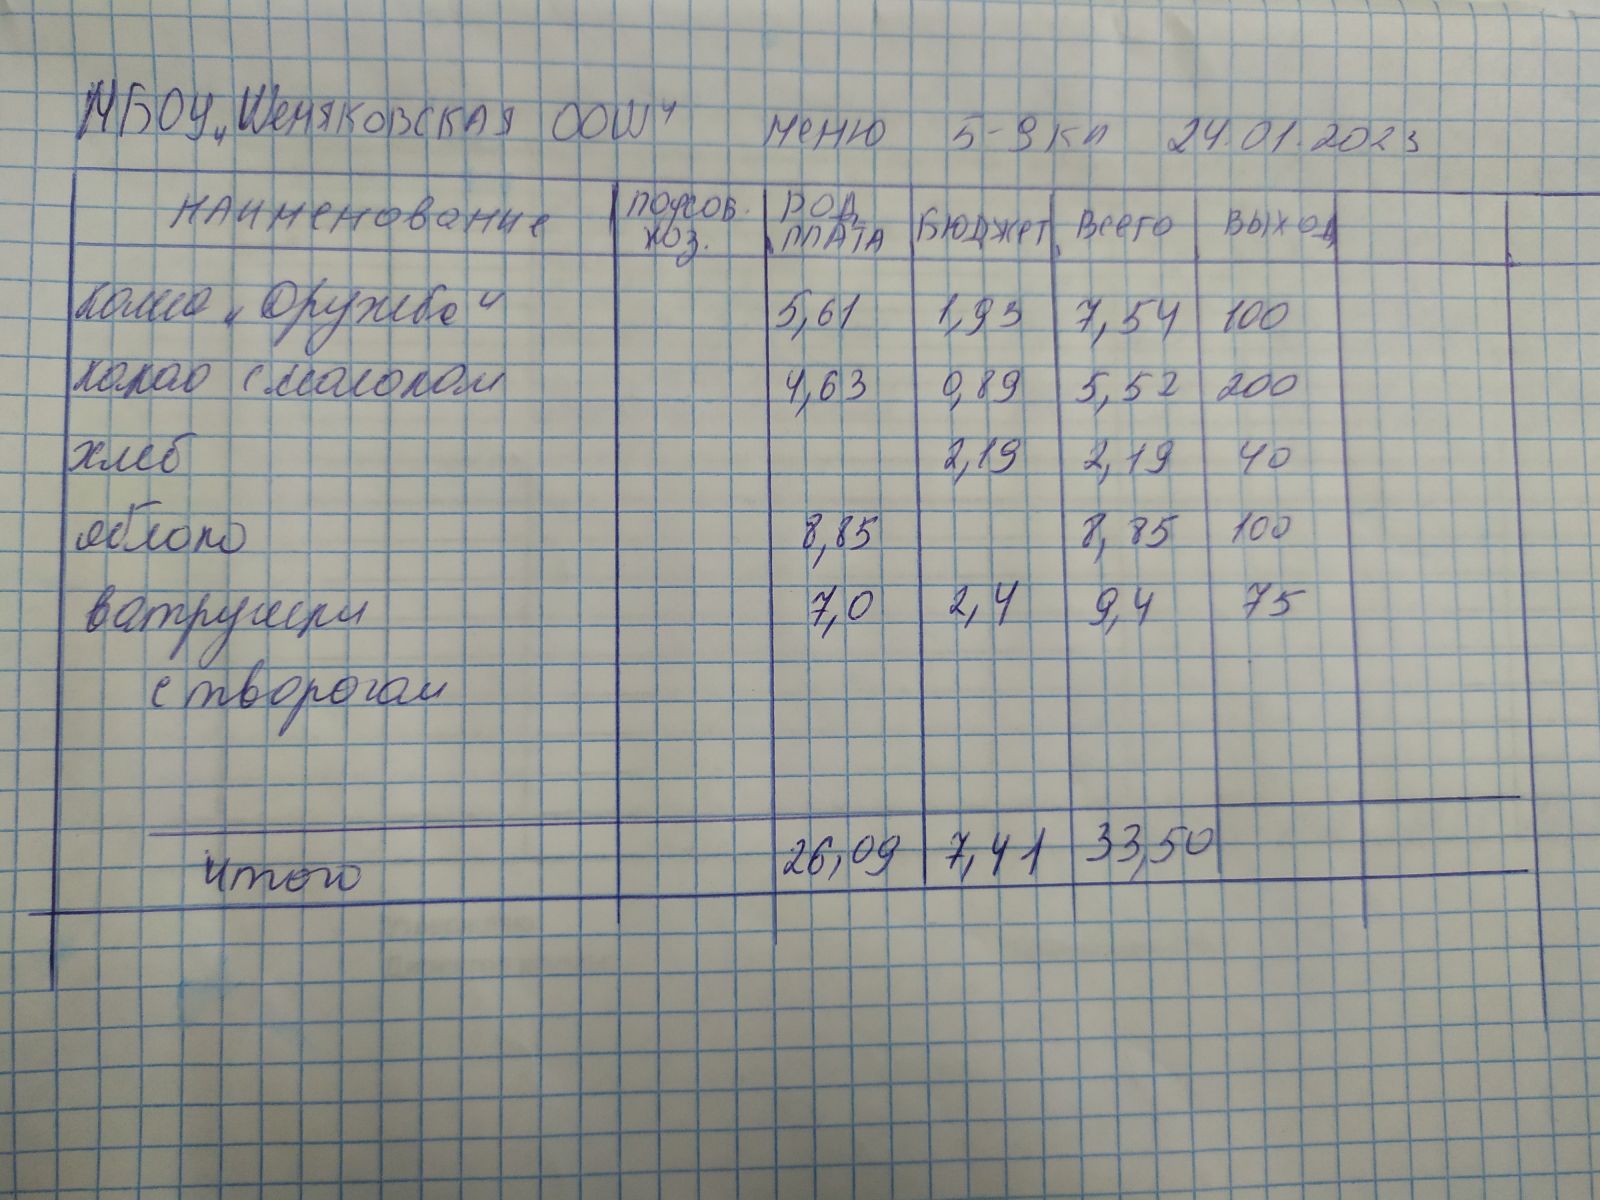 МБОУ „Шеняковская ООШ" меню 5-9 кл 24.01.2023
наименование подсоб. хоз. род плата бюджет всего выход
каша „Дружба" 5,61 1,93 7,54 100
какао с молоком 4,63 0,89 5,52 200
хлеб 2,19 2,19 40
яблоко 8,85 8,85 100
ватрушки 7,0 2,4 9,4 75
с творогом
Итого 26,09 7,41 33,50